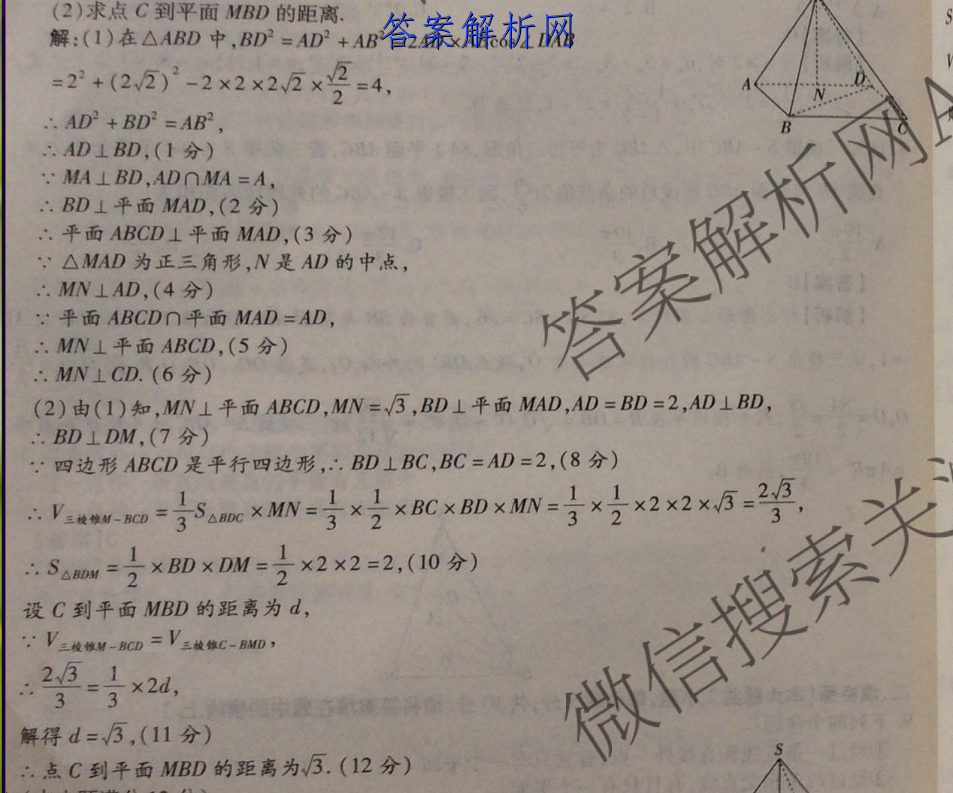 (2)求点 C 到平面 MBD 的距离.
答案解析网
解:(1)在△ABD 中,BD²=AD²+AB²-2AD×ABcos∠DAB
=2²+(2√2)²-2×2×2√2×√2/2=4,
∴AD²+BD²=AB²,
∴AD⊥BD,(1 分)
∵MA⊥BD,AD∩MA=A,
∴BD⊥平面 MAD,(2 分)
∴平面 ABCD⊥平面 MAD,(3 分)
∵△MAD 为正三角形,N 是 AD 的中点,
∴MN⊥AD,(4 分)
∵平面 ABCD∩平面 MAD=AD,
∴MN⊥平面 ABCD,(5 分)
∴MN⊥CD.(6 分)
(2)由(1)知,MN⊥平面 ABCD,MN=√3,BD⊥平面 MAD,AD=BD=2,AD⊥BD,
∴BD⊥DM,(7 分)
∵四边形 ABCD 是平行四边形,∴BD⊥BC,BC=AD=2,(8 分)
∴V三棱锥M-BCD=1/3S△BDC×MN=1/3×1/2×BC×BD×MN=1/3×1/2×2×2×√3=2√3/3,
∴S△BDM=1/2×BD×DM=1/2×2×2=2,(10 分)
设 C 到平面 MBD 的距离为 d,
∵V三棱锥M-BCD=V三棱锥C-BMD,
∴2√3/3=1/3×2d,
解得 d=√3,(11 分)
∴点 C 到平面 MBD 的距离为√3.(12 分)
A
N
D
B
C
答案解析网A
微信搜索关注
S